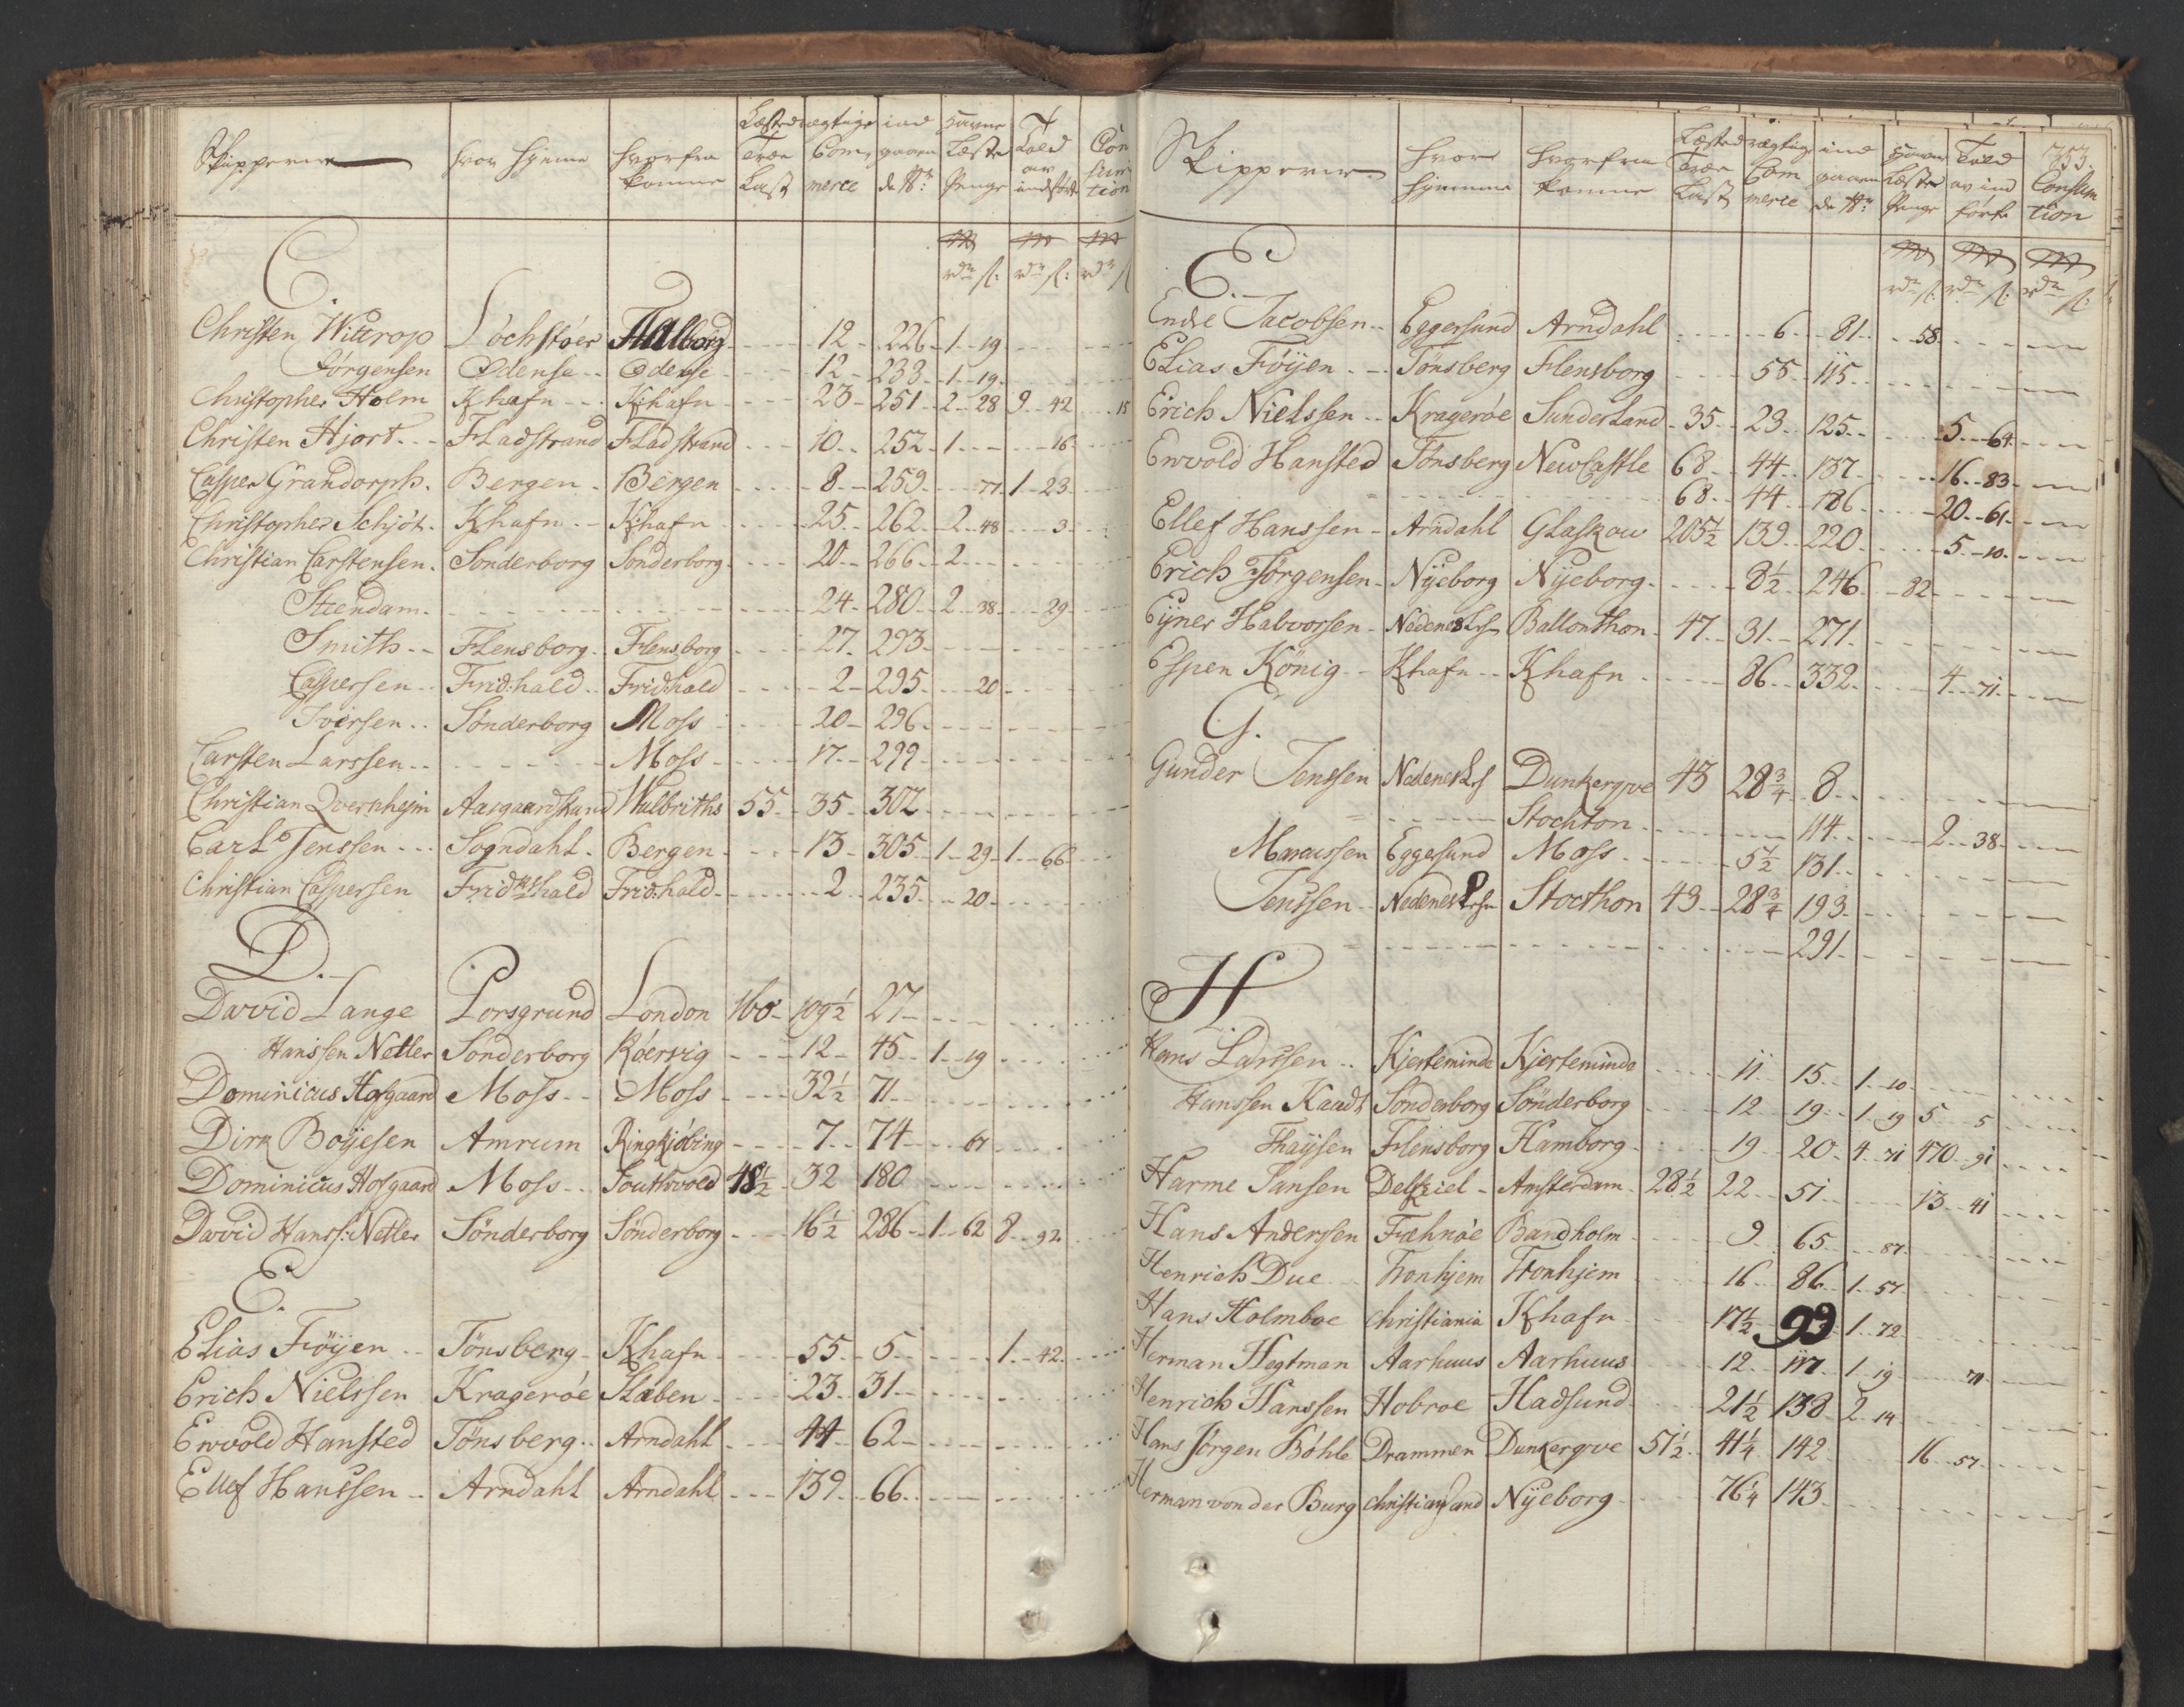 Skipperne hvor hjemme hvorfra komne Læstedrægtige Træe Last Commerce indgaaen de No: Havne Læste Penge Told av indførte Consumtion
rdr ſ: rdr ſ: rdr ſ
C.
Christen Wittrop Lóchstóer Aalborg 12 226 1 19
Jórgensen Odense Odense 12 233 1 19
Christopher Holm Khafn Khafn 23 251 2 28 9 42 15
Christen Hjort FLadstrand FLadstrand 10 252 1 16
Casper Grandorph. Bergen Bergen 8 259 77 1 23
Christopher Schjót. Khafn Khafn 25 262 2 48 3
Christian Carstensen. Sónderborg Sónderborg 20 266 2
Steendam. 24 280 2 38 29
Smith FLensborg Flensborg 27 293
Caspersen Frid:hald Frid:hald 2 295 20
Iversen Sónderborg Moss 20 296
Carsten Larssen Moss 17 299
Christian Qvernhejm Aasgaardstrand Walbriths 55 35 302
Carl Jenssen Sogndahl Bergen 13 305 1 29 1 66
Christian Caspersen Fridrshald Frid:hald 2 235 20
D.
David Lange Porsgrund London 160 109½ 27
Hanssen Netler Sónderborg Róervig 12 45 1 19
Dominicus Hofgaard Moss Moss 32½ 71
Dirk Boÿesen Amrum Ringkjóbing 7 74 67
Dominicus Hofgaard Moss Southwold 48½ 32 180
David Hanss: Netler Sónderborg Sónderborg 16½ 286 1 62 8 92
E.
Elias Fóÿen Tónsberg Khafn 55 5 1 42
Erich Nielssen Krageróe Staben 23 31
Ewold Hansted Tónsberg Arndahl 44 62
Ellef Hanssen Arndahl Arndahl 139 66
353.
Skipperne hvor hjemme hvorfra komne Læstedrægtige Træe Last Commerce indgaaen de No: Havne Læste Penge Told av indførte Consumtion
rdr ſ: rdr ſ: rdr ſ:
E.
Endre Jacobsen Eggersund Arndahl 6 81 58
ELias Fóÿen Tónsberg Flensborg 55 115
Erich Nielssen Krageróe SunderLand 35 23 125 5 64
Ewold Hansted Tónsberg NewCastle 68 44 137 16 83
68 44 186 20 61
Ellef Hanssen Arndahl Glaskow 205½ 139 220 5 10
Erich Jórgensen Nÿeborg Nÿeborg 8½ 246 82
Eÿner Halvorsen Nedenes Lehn Ballonthon 47 31 271
Espen König Khafn Khafn 86 332 4 71
G.
Gunder Jenssen Nedenes Dunkerqve 43 28¾ 8
Stockton 114 2 38
Marcussen Eggersund Moss 5½ 131
Jenssen Nedenes Stocthon 43 28¾ 193
291
H.
Hans Larssen Kjerteminde Kjerteminde 11 15 1 10
Hanssen Kaadt Sónderborg Sónderborg 12 19 1 19 5 5
Thaÿsen Flensborg Hamborg 19 20 4 71 470 91
Harme Jansen Delfziel Amsterdam 28½ 22 51 13 41
Hans Anderssen Fæhnóe Bandholm 9 65 87
Henrich Due Tronhjem Tronhjem 16 86 1 57
Hans Holmboe Christiania Khafn 17½ 93 1 72
Herman Hegtman Aarhuus Aarhuus 12 117 1 19 71
Henrich Hanssen Hobroe Hadsund 21½ 138 2 14
Hans Jórgen Bóhle Drammen Dunkerqve 51½ 41¼ 142 16 57
Herman von der Burg Christiansand Nÿeborg 76¼ 143